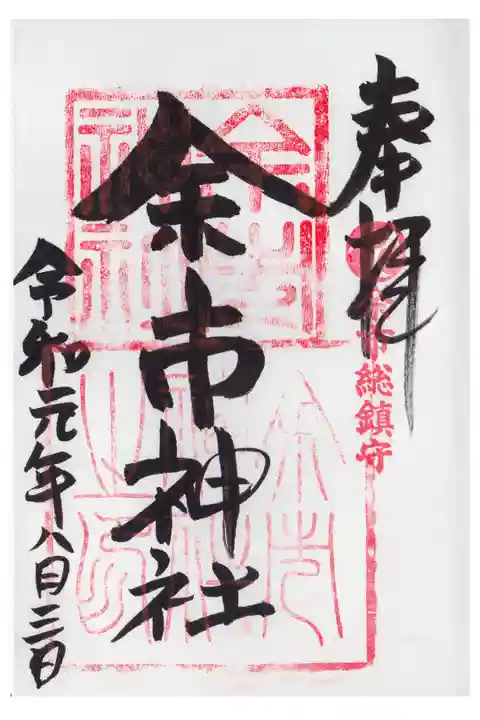 奉拝
総鎮守
余市神社
令和元年八月三日